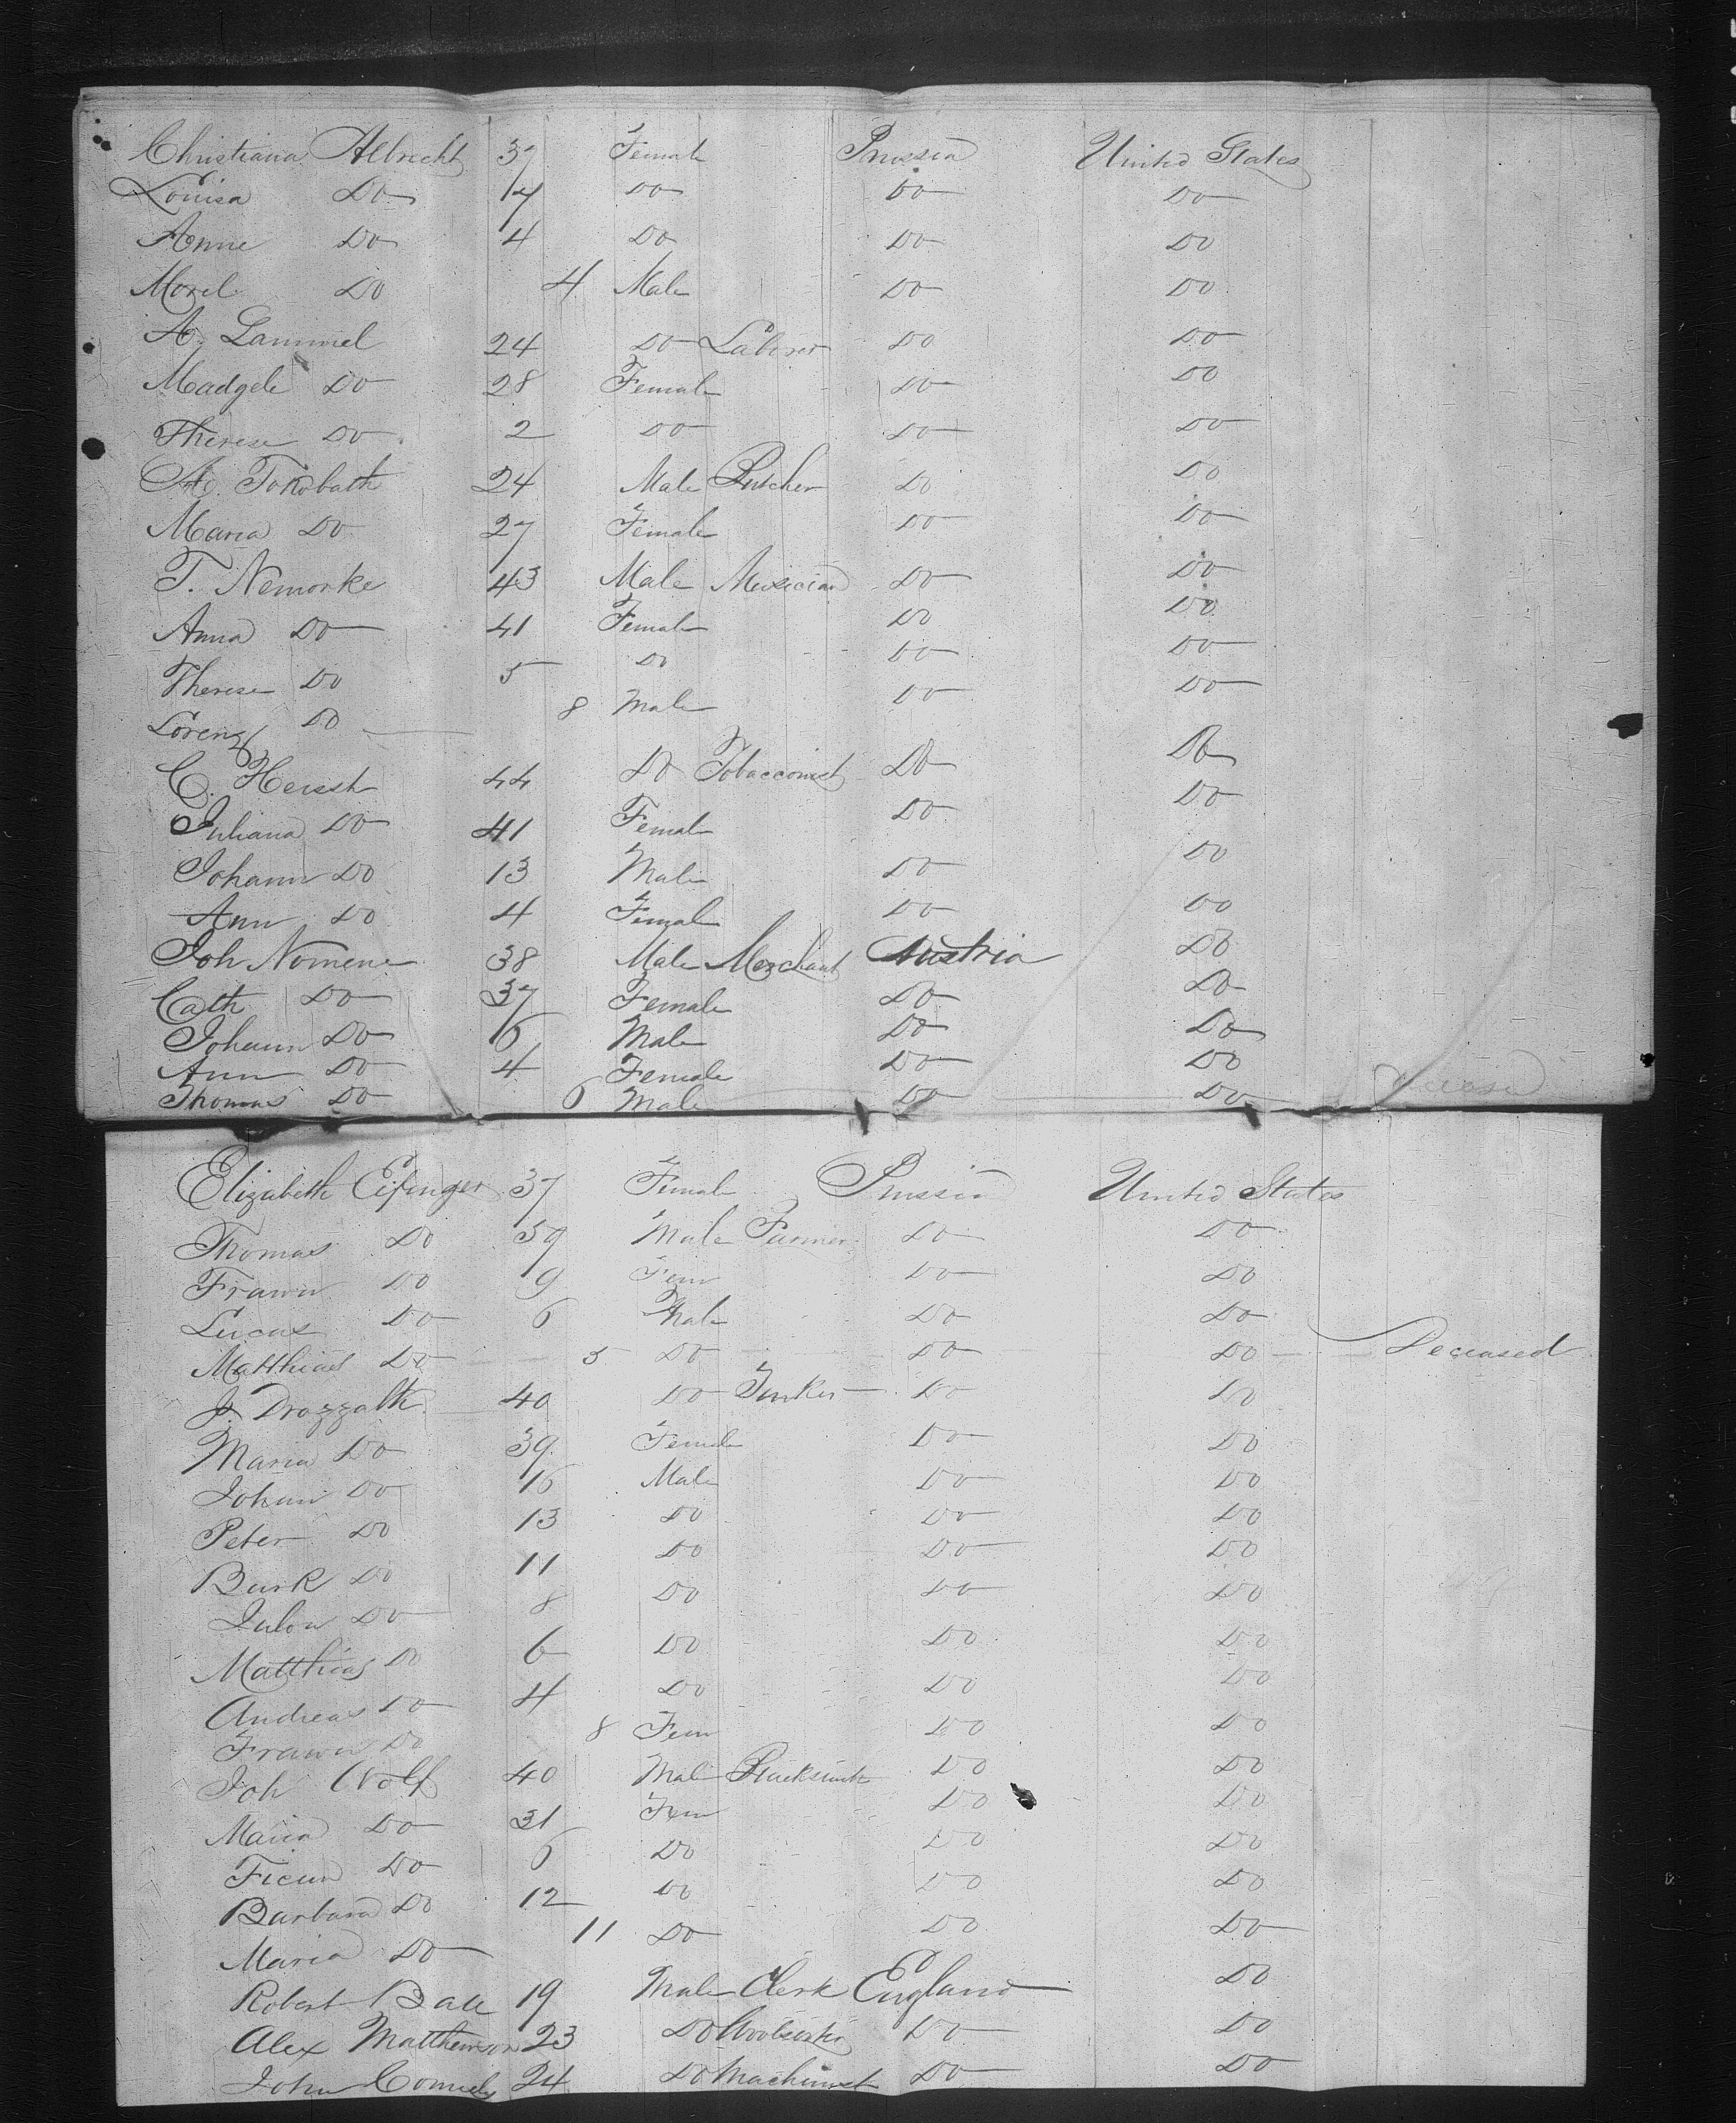 Christiana Albrecht 37 Female Prussia United States
Louisa Do 17 Do Do Do
Anne Do 4 Do Do Do
Morel Do 4 Male Do Do
A. Lammel 24 Do Laborer Do Do
Madgele Do 28 Female Do Do
Therese Do 2 Do Do Do
A. Tokobath 24 Male Butcher Do Do
Maria Do 27 Female Do Do
T. Nemorke 43 Male Musician Do Do
Anna Do 41 Female Do Do
Therese Do 5 Do Do Do
Lorenz Do 8 Male Do Do
C. Hersch 44 Do Tobacconist Do Do
Juliana Do 41 Female Do Do
Johann Do 13 Male Do Do
Ann Do 4 Female Do Do
Joh Nomene 38 Male Merchant Austria Do
Cath Do 37 Female Do Do
Johann Do 6 Male Do Do
Ann Do 4 Female Do Do
Thomas Do 6 Male Do Do
Elizabeth Eifinger 37 Female Prussia United States
Thomas Do 39 Male Farmer Do Do
Frawn Do 9 Fem Do Do
Lucas Do 6 Male Do Do
Matthias Do 5 Do Do Do Deceased
J. Drozzalk 40 Do Do Do
Maria Do 39 Female Do Do
Johan Do 16 Male Do Do
Peter Do 13 Do Do Do
Bark Do 11 Do Do Do
Do 8 Do Do Do
Matthias Do 6 Do Do Do
Andreas Do 4 Do Do Do
Frawn Do 8 Fem Do Do
Joh Wolf 40 Male Blacksmith Do Do
Maria Do 31 Fem Do Do
Do 6 Do Do Do
Barbara Do 12 Do Do Do
Maria Do 11 Do Do Do
Robert Bale 19 Male Clerk England Do
Alex Matthewson 23 Do Do Do
John 24 Do Machinist Do Do